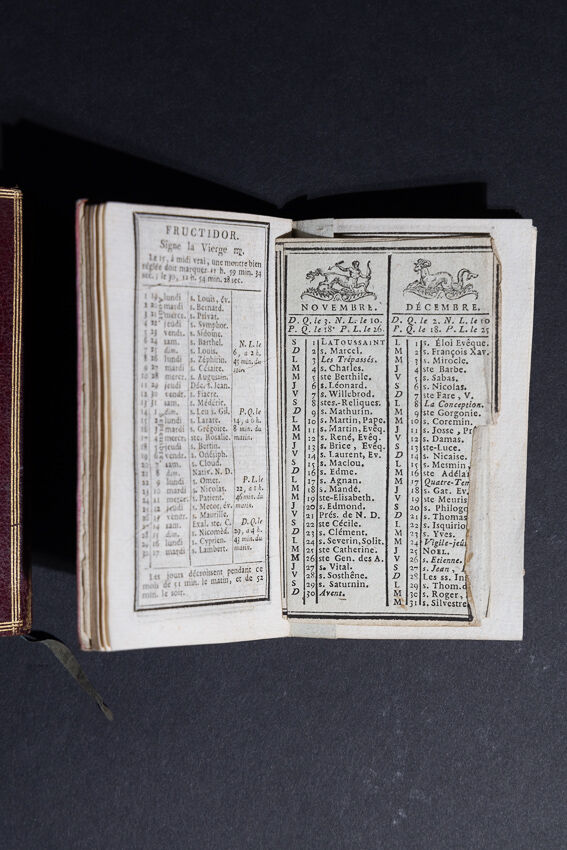 FRUCTIDOR.
Signe la Vierge ♍.
Le 15, à midi vrai, une montre bien
réglée doit marquer 11 h. 59 min. 34
sec.; le 30, 11 h. 54 min. 28 sec.
lundi s. Louis, év.
mardi s. Bernard.
merc. s. Privat.
jeudi s. Symphor.
vendr. s. Sidoine.
sam. s. Barthel. N. L. le
dim. s. Louis. 6, à 2 h.
lundi s. Zéphirin. 45 min. du
mardi s. Césaire. soir.
merc. s. Augustin.
jeudi Déc. s. Jean.
vendr. s. Fiacre.
sam. s. Médéric.
dim. s. Leu s. Gil. P. Q. le
lundi s. Lazare. 14, à 6 h.
mardi s. Grégoire. 8 min. du
merc. ste. Rosalie. matin.
jeudi s. Bertin.
vendr. s. Onésiph.
sam. s. Cloud.
dim. Nativ. N. D.
lundi s. Omer. P. L. le
mardi s. Nicolas. 22, à 6 h.
mercr. s. Patient. 46 min. du
jeudi s. Hyacin. matin.
vendr. s. Maurille.
sam. Exal. ste. C. D. Q. le
dim. s. Nicomède. 29, à 4 h.
lundi s. Cyprien. 43 min. du
mardi s. Lambert. matin.
Les jours décroissent pendant ce
mois de 51 min. le matin, et de 52
min. le soir.
NOVEMBRE.
D. Q. le 3. N. L. le 10.
P. Q. le 18. P. L. le 26.
S 1 LA TOUSSAINT
D 2 s. Marcel.
L 3 Les Trépassés.
M 4 s. Charles.
M 5 ste Berthile.
J 6 s. Léonard.
V 7 s. Willebrod.
S 8 stes-Reliques.
D 9 s. Mathurin.
L 10 s. Martin, Pape.
M 11 s. Martin, Evêq.
M 12 s. René, Evêq.
J 13 s. Brice, Evêq.
V 14 s. Laurent, Ev.
S 15 s. Maclou.
D 16 s. Edme.
L 17 s. Agnan.
M 18 s. Mandé.
M 19 ste-Elisabeth.
J 20 s. Edmond.
V 21 Prés. de N. D.
S 22 ste Cécile.
D 23 s. Clément.
L 24 s. Severin, Solit.
M 25 ste Catherine.
M 26 ste Gen. des A.
J 27 s. Vital.
V 28 s. Sosthêne.
S 29 s. Saturnin.
D 30 Avent.
DÉCEMBRE.
D. Q. le 2. N. L. le 10
P. Q. le 18. P. L. le 25
L 1 s. Éloi Evêque.
M 2 s. François Xav.
M 3 s. Mirocle.
J 4 ste Barbe.
V 5 s. Sabas.
S 6 s. Nicolas.
D 7 ste Fare, V.
L 8 la Conception.
M 9 ste Gorgonie.
M 10 s. Coremin.
J 11 s. Josse, Pr
V 12 s. Damas.
S 13 ste-Luce.
D 14 s. Nicaise.
L 15 s. Mesmin,
M 16 ste Adélaï
M 17 Quatre-Tem
J 18 s. Gat. Ev.
V 19 ste Meuris
S 20 s. Philogo
D 21 s. Thomas
L 22 s. Isquirio
M 23 s. Yves.
M 24 Vigile-jeû
J 25 NOËL.
V 26 s. Etienne.
S 27 s. Jean,
D 28 Les ss. Inn
L 29 s. Thom. d
M 30 s. Roger,
M 31 s. Silvestre